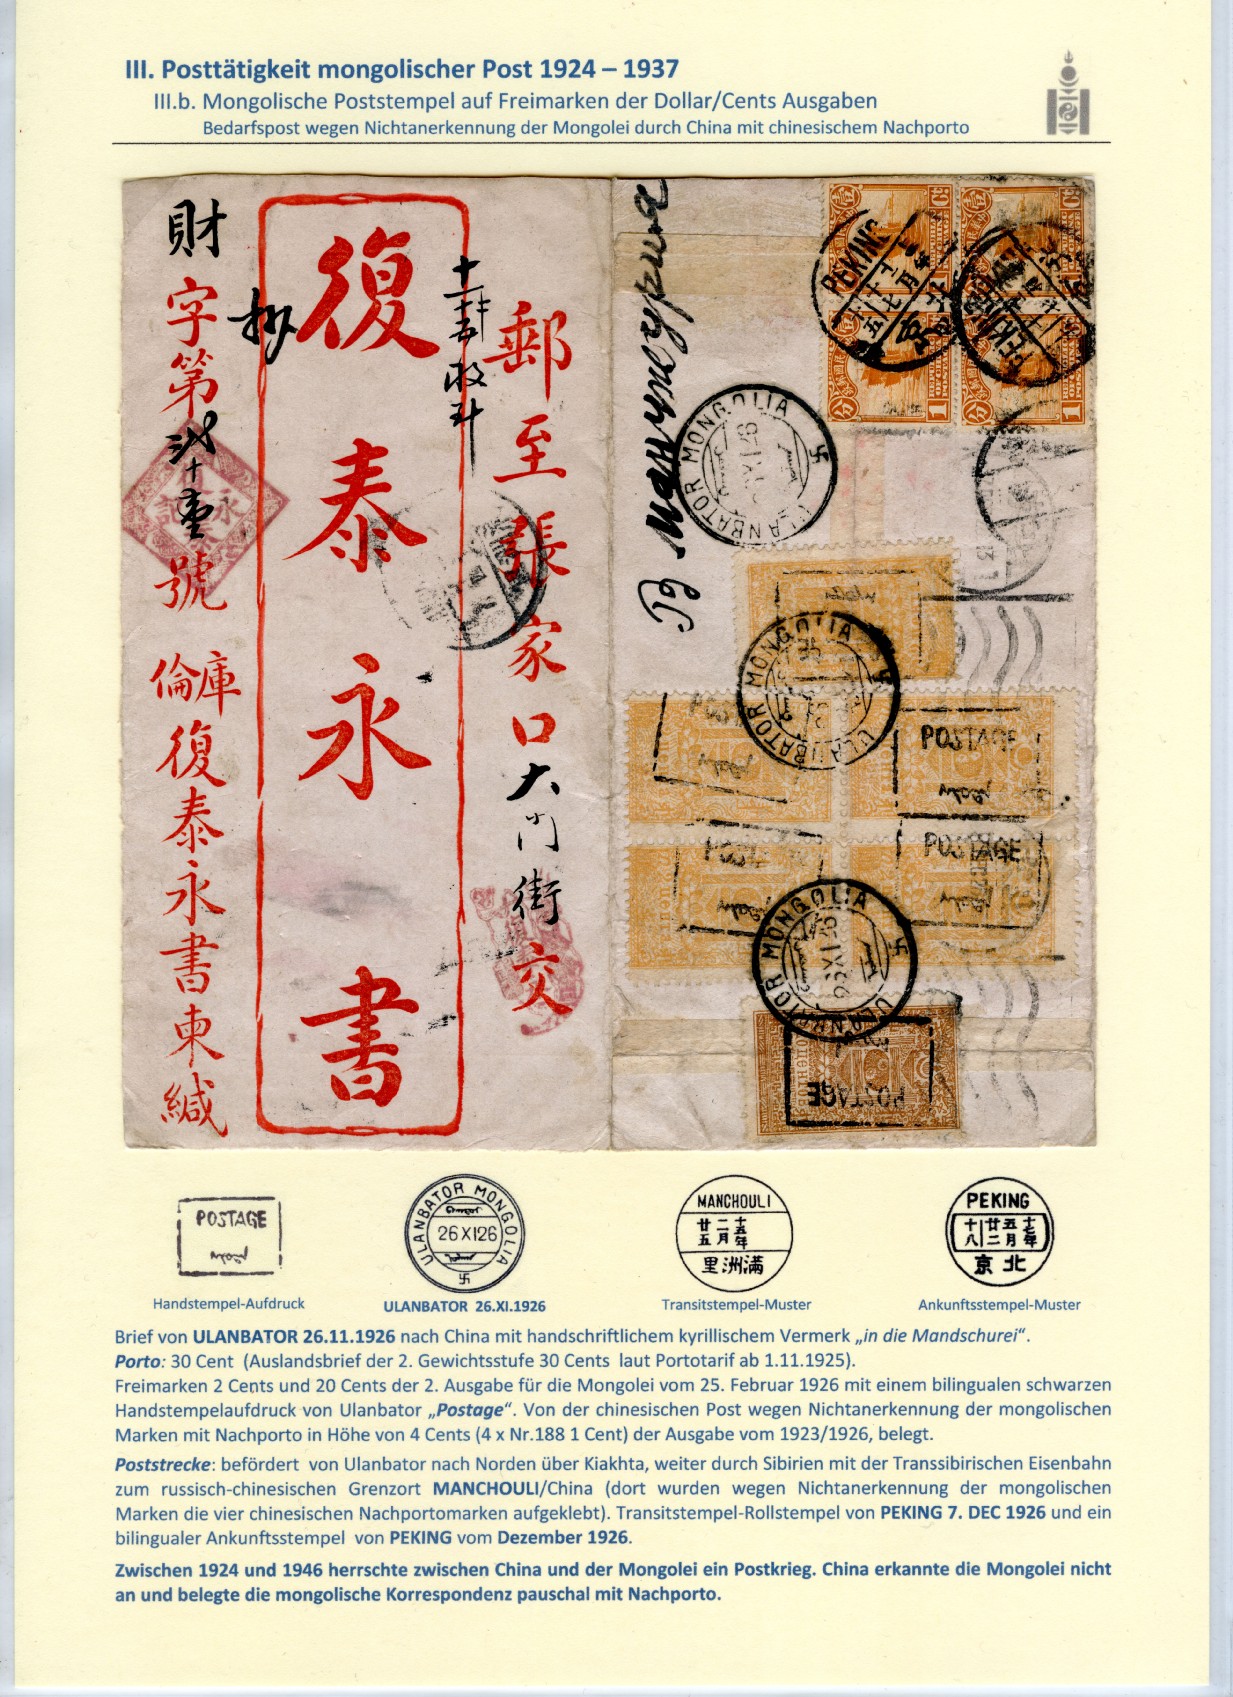 III. Posttätigkeit mongolischer Post 1924 – 1937
III.b. Mongolische Poststempel auf Freimarken der Dollar/Cents Ausgaben
Bedarfspost wegen Nichtanerkennung der Mongolei durch China mit chinesischem Nachporto
郵至張家口大門街交
十一廿五收 
復泰永書
抄
財字第 號
庫倫復泰永書柬緘
永記
Въ Манчжурiю
PEKING
北京
PEKING
ULANBATOR MONGOLIA
ULANBATOR MONGOLIA
POSTAGE
POSTAGE
POSTAGE
POSTAGE
ULANBATOR MONGOLIA
26 XI 26
POSTAGE
POSTAGE
Handstempel-Aufdruck
ULANBATOR MONGOLIA
26XI26
ULANBATOR 26.XI.1926
MANCHOULI
廿五 二月 十五年
里洲滿
Transitstempel-Muster
PEKING
十八 廿二 五月 十七年
京北
Ankunftsstempel-Muster
Brief von ULANBATOR 26.11.1926 nach China mit handschriftlichem kyrillischem Vermerk „in die Mandschurei“.
Porto: 30 Cent (Auslandsbrief der 2. Gewichtsstufe 30 Cents laut Portotarif ab 1.11.1925).
Freimarken 2 Cents und 20 Cents der 2. Ausgabe für die Mongolei vom 25. Februar 1926 mit einem bilingualen schwarzen
Handstempelaufdruck von Ulanbator „Postage“. Von der chinesischen Post wegen Nichtanerkennung der mongolischen
Marken mit Nachporto in Höhe von 4 Cents (4 x Nr.188 1 Cent) der Ausgabe vom 1923/1926, belegt.
Poststrecke: befördert von Ulanbator nach Norden über Kiakhta, weiter durch Sibirien mit der Transsibirischen Eisenbahn
zum russisch-chinesischen Grenzort MANCHOULI/China (dort wurden wegen Nichtanerkennung der mongolischen
Marken die vier chinesischen Nachportomarken aufgeklebt). Transitstempel-Rollstempel von PEKING 7. DEC 1926 und ein
bilingualer Ankunftsstempel von PEKING vom Dezember 1926.
Zwischen 1924 und 1946 herrschte zwischen China und der Mongolei ein Postkrieg. China erkannte die Mongolei nicht
an und belegte die mongolische Korrespondenz pauschal mit Nachporto.